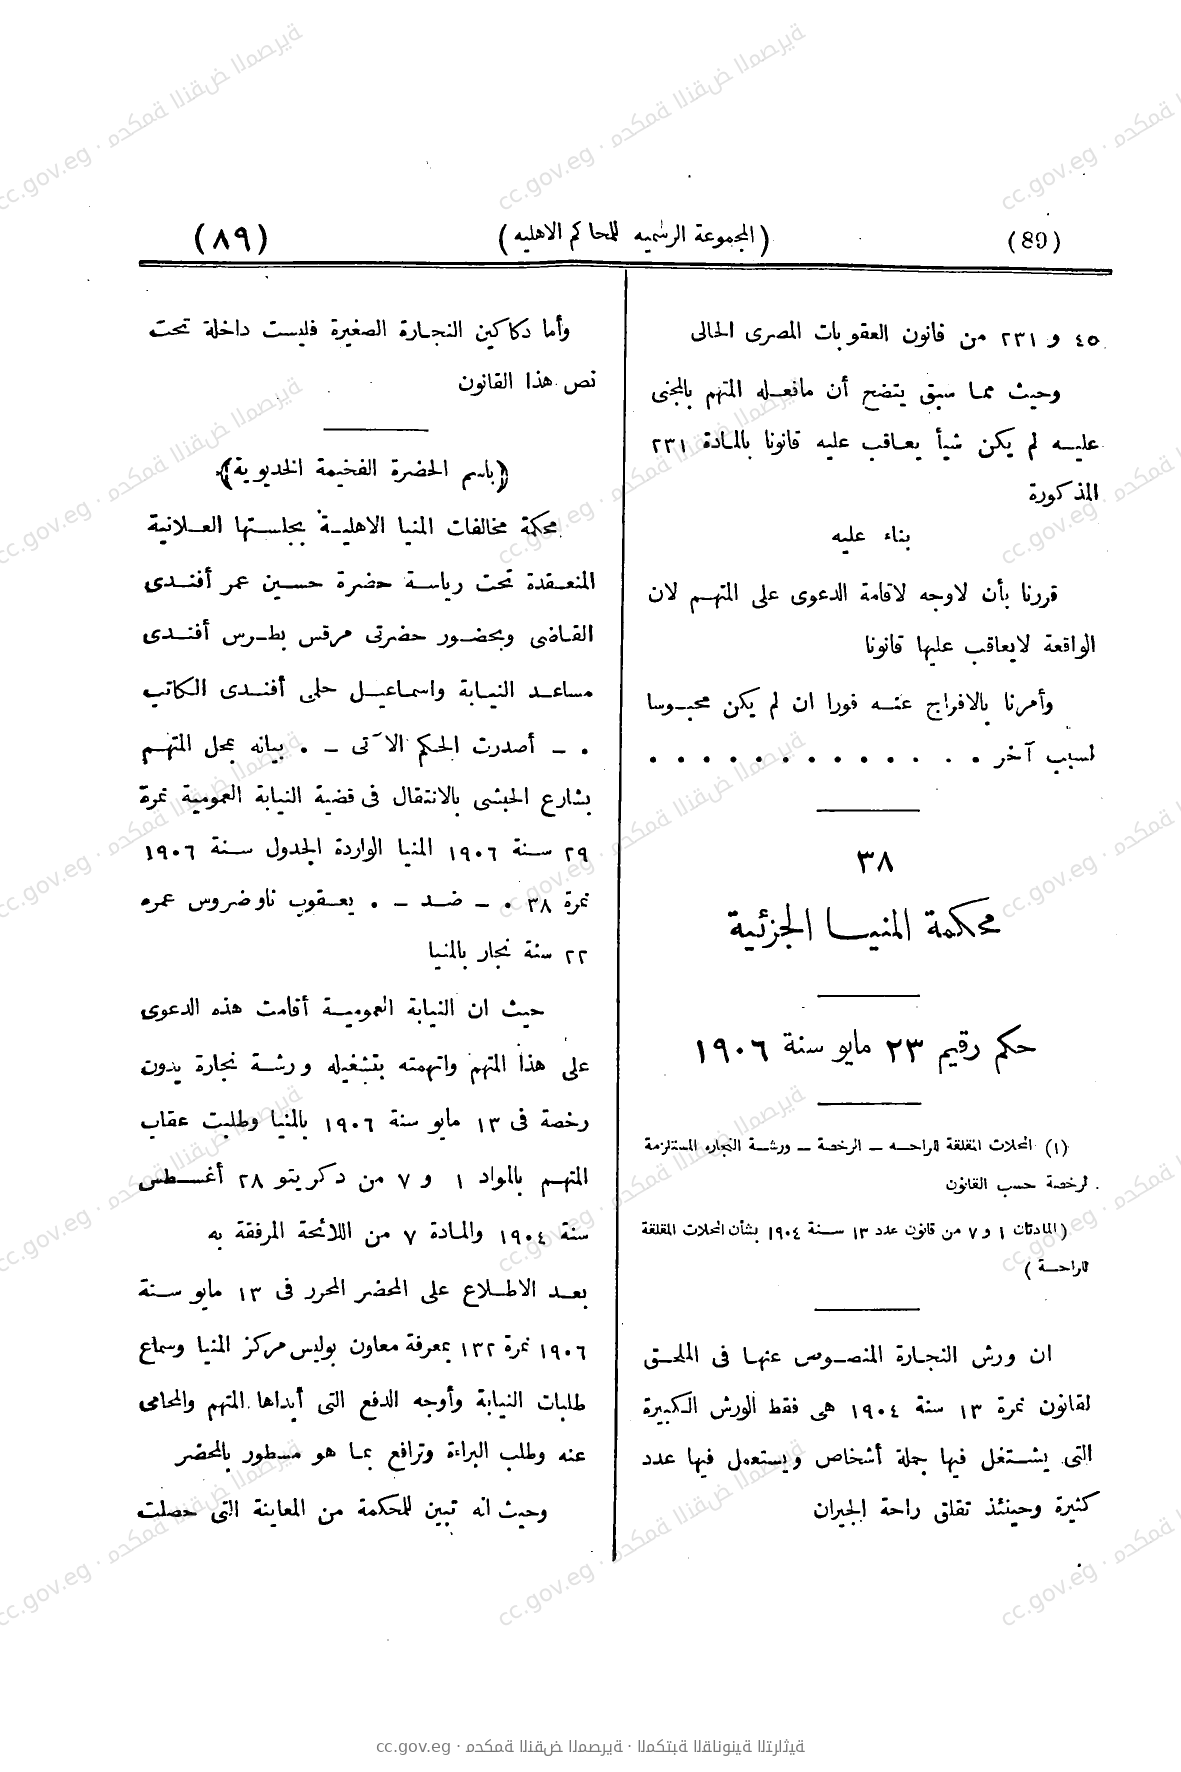 (89) (المجموعة الرسميه للمحاكم الاهليه) (٨٩)
٤٥ و ٢٣١ من قانون العقوبات المصرى الحالى
وحيث مما سبق يتضح أن مافعله المتهم بالمجنى
عليه لم يكن شيأ يعاقب عليه قانونا بالمادة ٢٣١
المذكورة
بناء عليه
قررنا بأن لاوجه لاقامة الدعوى على المتهم لان
الواقعة لايعاقب عليها قانونا
وأمرنا بالافراج عنه فورا ان لم يكن محبوسا
لسبب آخر . . . . . . . . . . . . .
٣٨
محكمة المنيا الجزئية
حكم رقيم ٢٣ مايو سنة ١٩٠٦
(١) المحلات المقلقة للراحه – الرخصة – ورشة النجاره المستلزمة
لرخصة حسب القانون
(المادتان ١ و ٧ من قانون عدد ١٣ سنة ١٩٠٤ بشأن المحلات المقلقة
للراحة )
ان ورش النجارة المنصوص عنها فى الملحق
لقانون نمرة ١٣ سنة ١٩٠٤ هى فقط الورش الكبيرة
التى يشتغل فيها جملة أشخاص ويستعمل فيها عدد
كثيرة وحينئذ تقلق راحة الجيران
وأما دكاكين النجارة الصغيرة فليست داخلة تحت
نص هذا القانون
(باسم الحضرة الفخيمة الخديوية)
محكمة مخالفات المنيا الاهلية بجلستها العلانية
المنعقدة تحت رياسة حضرة حسين عمر أفندى
القاضى وبحضور حضرتى مرقس بطرس أفندى
مساعد النيابة واسماعيل حلمى أفندى الكاتب
. – أصدرت الحكم الآتى – . بيانه بمحل المتهم
بشارع الحبشى بالانتقال فى قضية النيابة العمومية نمرة
٢٩ سنة ١٩٠٦ المنيا الواردة الجدول سنة ١٩٠٦
نمرة ٣٨ . – ضد – . يعقوب ناوضروس عمره
٢٢ سنة نجار بالمنيا
حيث ان النيابة العمومية أقامت هذه الدعوى
على هذا المتهم واتهمته بتشغيله ورشة نجارة بدون
رخصة فى ١٣ مايو سنة ١٩٠٦ بالمنيا وطلبت عقاب
المتهم بالمواد ١ و ٧ من دكريتو ٢٨ أغسطس
سنة ١٩٠٤ والمادة ٧ من اللائحة المرفقة به
بعد الاطلاع على المحضر المحرر فى ١٣ مايو سنة
١٩٠٦ نمرة ١٣٢ بمعرفة معاون بوليس مركز المنيا وسماع
طلبات النيابة وأوجه الدفع التى أبداها المتهم والمحامى
عنه وطلب البراءة وترافع بما هو مسطور بالمحضر
وحيث انه تبين للمحكمة من المعاينة التى حصلت
cc.gov.eg · محكمة النقض المصرية · المكتبة القانونية التراثية